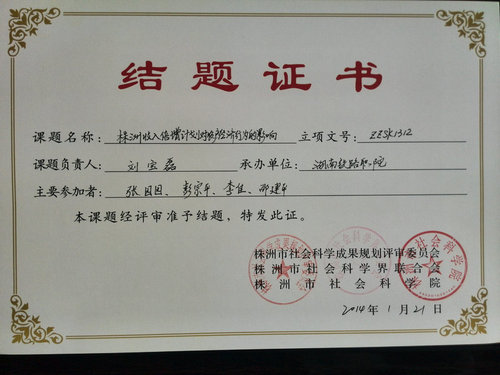 结题证书
课题名称：株洲收入倍增计划对农户经济行为的影响 立项文号：ZZSK1312
课题负责人：刘宝磊 承办单位：湖南铁路职院
主要参加者：张团团、彭宗平、李佳、邓建平
本课题经评审准予结题，特发此证。
株洲市社会科学成果规划评审委员会
株洲市社会科学界联合会
株洲市社会科学院
2014年1月21日